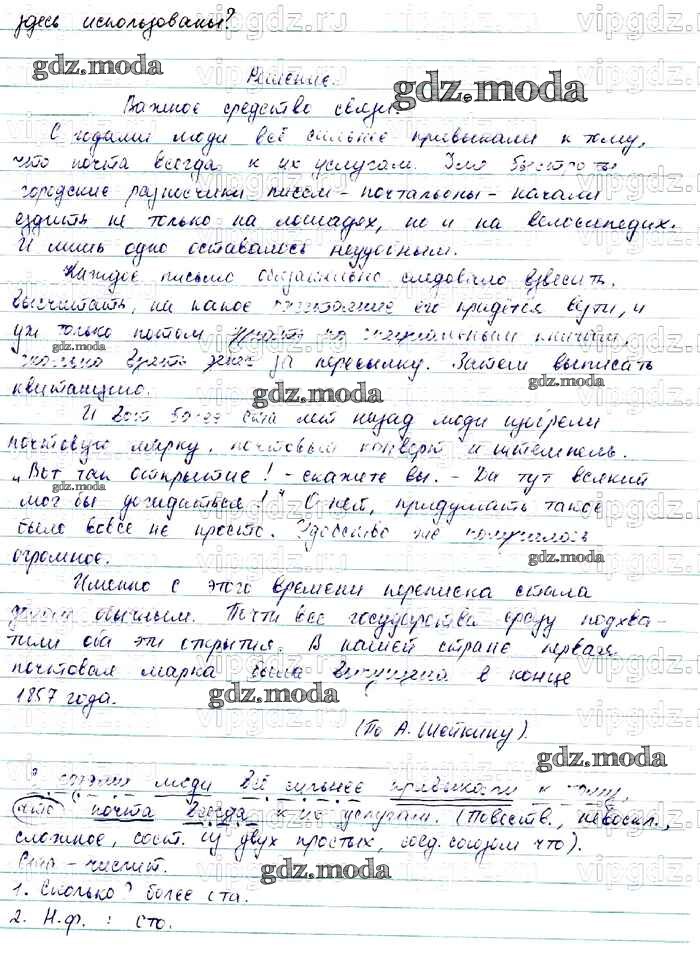 здесь использованы?
Решение.
Важное средство связи.
С годами люди всё сильнее привыкали к тому,
что почта всегда к их услугам. Для быстроты
городские разносчики писем - почтальоны - начали
ездить не только на лошадях, но и на велосипедах.
И лишь одно оставалось неудобным.
Каждое письмо обязательно следовало взвесить.
Высчитать, на какое расстояние его придётся везти, и
уж только потом узнать по специальным книгам,
сколько взять денег за пересылку. Затем выписать
квитанцию.
И вот более ста лет назад люди изобрели
почтовую марку, почтовый конверт и штемпель.
„Вот так открытие! - скажете вы. - Да тут всякий
мог бы догадаться!" О нет, придумать такое
было вовсе не просто. Удобство же получилось
огромное.
Именно с этого времени переписка стала
делом обычным. Почти все государства сразу подхва-
тили оба эти открытия. В нашей стране первая
почтовая марка была выпущена в конце
1857 года.
(По А. Шейкину).
С годами люди всё сильнее привыкали к тому,
что почта всегда к их услугам. (Повеств., невоскл.,
сложное, сост. из двух простых, соед. союзом что).
Ста - числит.
1. Сколько? более ста.
2. Н.ф. : сто.
gdz.moda
vipgdz.ru